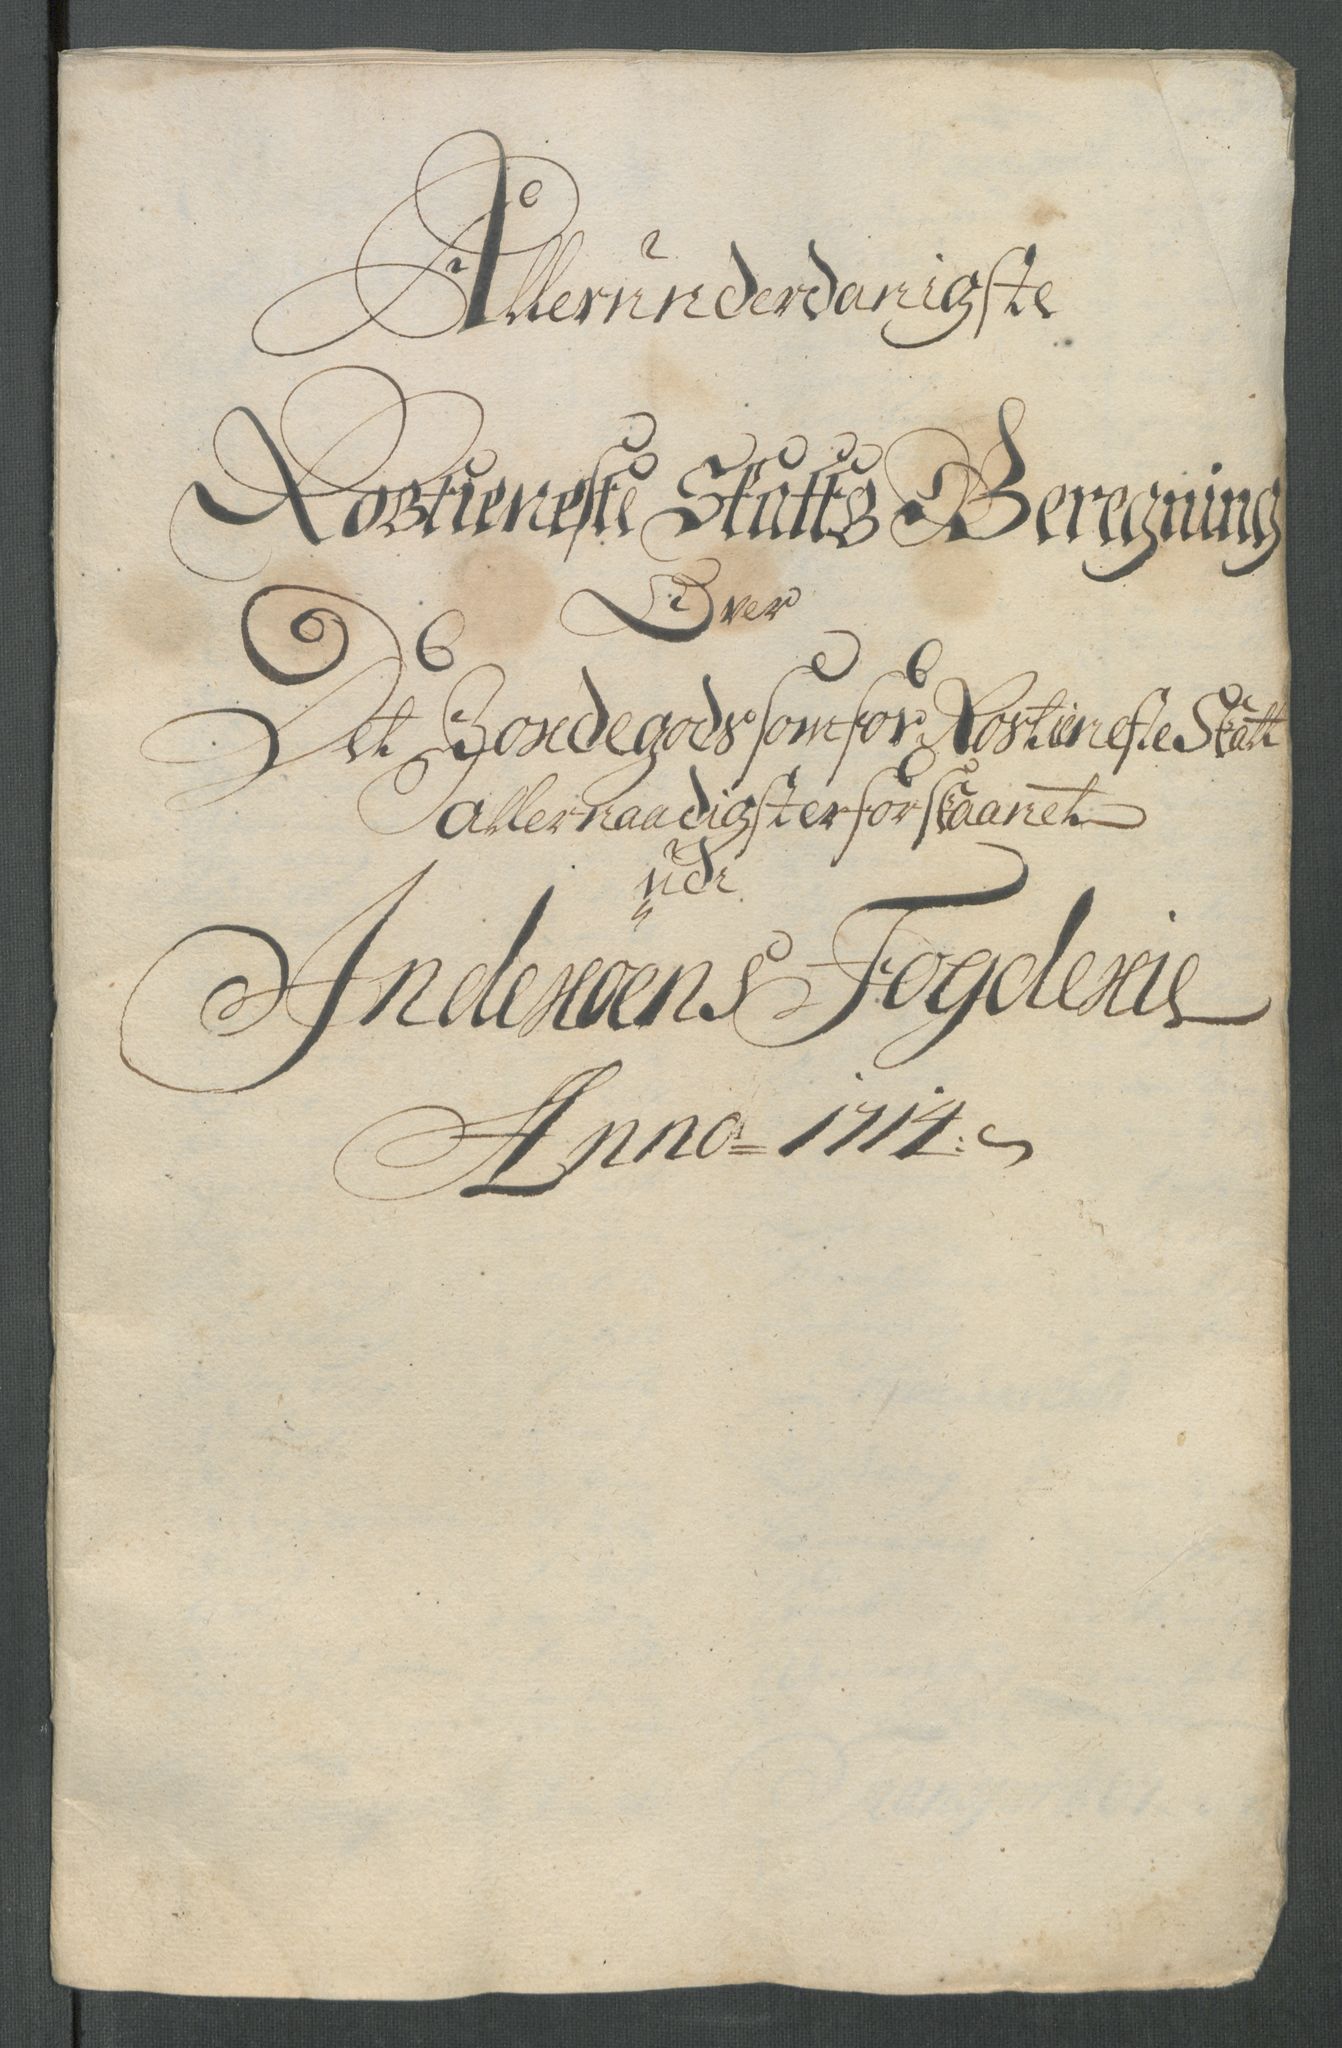 Allerunderdanigste
Rostieneste Skatts Beregning
Over
Det Bondegods som for Rostieneste Skatt
allernaadigst er forskaanet
udi
Inderøens Fogderie
Anno = 1714: